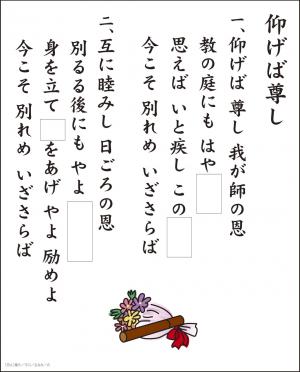 仰げば尊し
一、仰げば 尊し 我が師の恩
教の庭にも はや□
思えば いと疾し この□
今こそ 別れめ いざさらば
二、互に睦みし 日ごろの恩
別るる後にも やよ□
身を立て □をあげ やよ 励めよ
今こそ 別れめ いざさらば